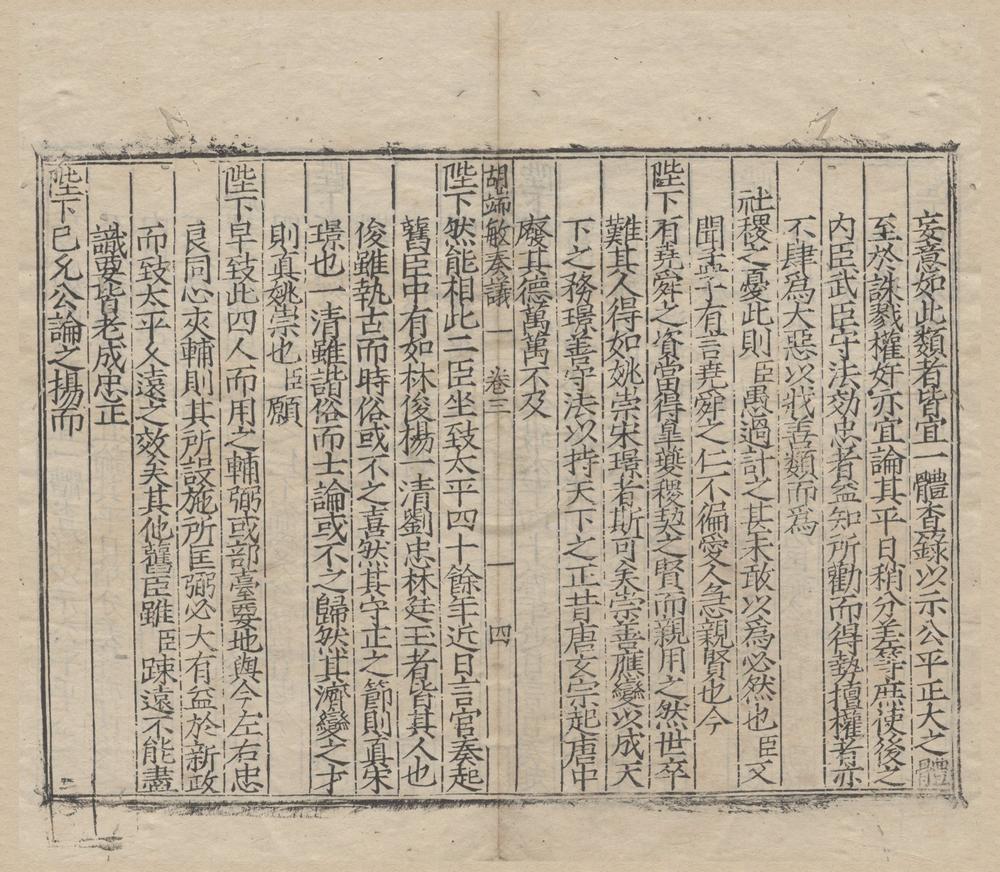 妄意如此類者皆宜一體查錄以示公平正大之體
至於誅戮權奸亦宜論其平日稍分差等庶使後之
内臣武臣守法効忠者益知所勸而得勢擅權者亦
不肆爲大惡以戕善類而爲
社稷之憂此則臣愚過計之甚未敢以爲必然也臣又
聞孟子有言堯舜之仁不徧愛人急親賢也今
陛下有堯舜之資當得臯夔稷契之賢而親用之然世卒
難其人得如姚崇宋璟者斯可矣崇善應變以成天
下之務璟善守法以持天下之正昔唐玄宗起唐中
廢其德萬萬不及
胡端敏奏議 卷三 四
陛下然能相此二臣坐致太平四十餘年近日言官奏起
舊臣中有如林俊楊一清劉忠林廷玉者皆其人也
俊雖執古而時俗或不之喜然其守正之節則眞宋
璟也一清雖諧俗而士論或不之歸然其濟變之才
則眞姚崇也臣願
陛下早致此四人而用之輔弼或部臺要地與今左右忠
良同心夾輔則其所設施所匡弼必大有益於新政
而致太平久遠之效矣其他舊臣雖臣踈遠不能盡
識要皆老成忠正
陛下已允公論之揚而